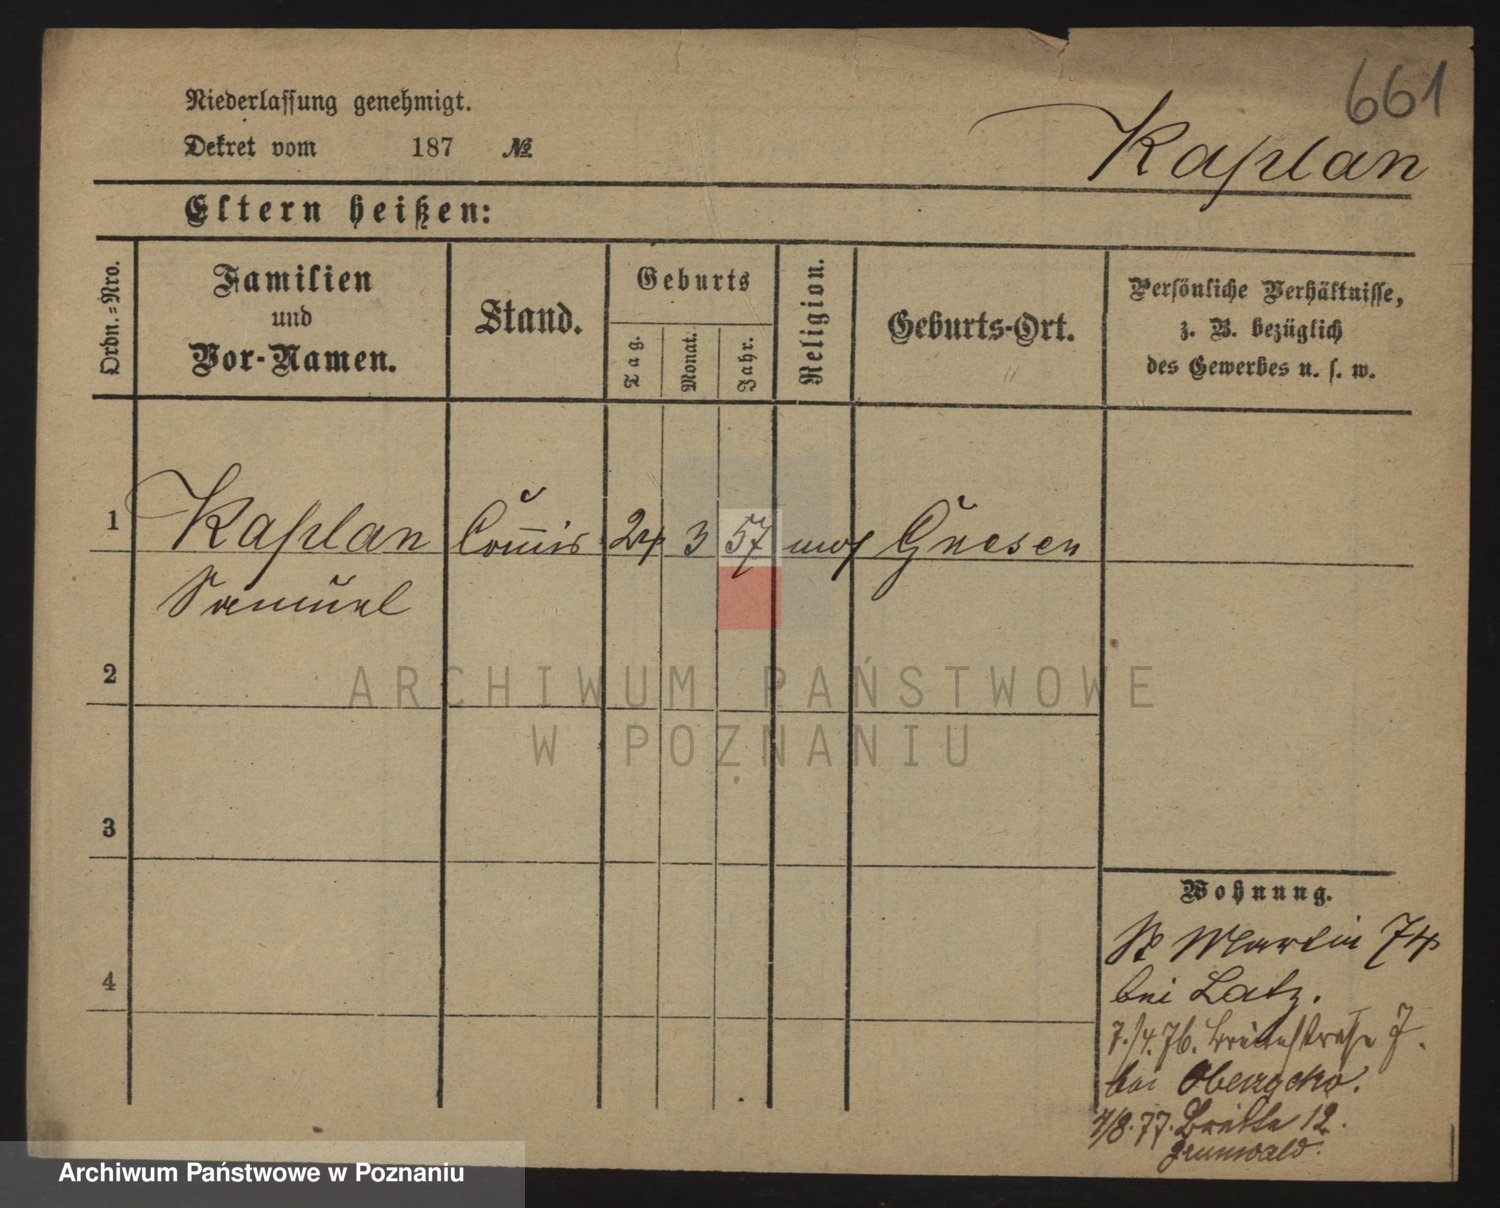 661
Niederlassung genehmigt.
Dekret vom 187 №
Kaplan
Eltern heißen:
Ordn.=Nro.
Familien und Vor-Namen.
Stand.
Geburts
Tag.
Monat.
Jahr.
Religion.
Geburts-Ort.
Persönliche Verhältnisse,
z. B. bezüglich
des Gewerbes u. s. w.
1 Kaplan Com̅is 24 3 57 mos Gnesen
Samuel
2
3
4
Wohnung.
St Martin 74
bei Latz.
7./4. 76. 7.
bei
4/8. 77. Breite 12.
Grunwald.
ARCHIWUM PAŃSTWOWE
W POZNANIU
Archiwum Państwowe w Poznaniu